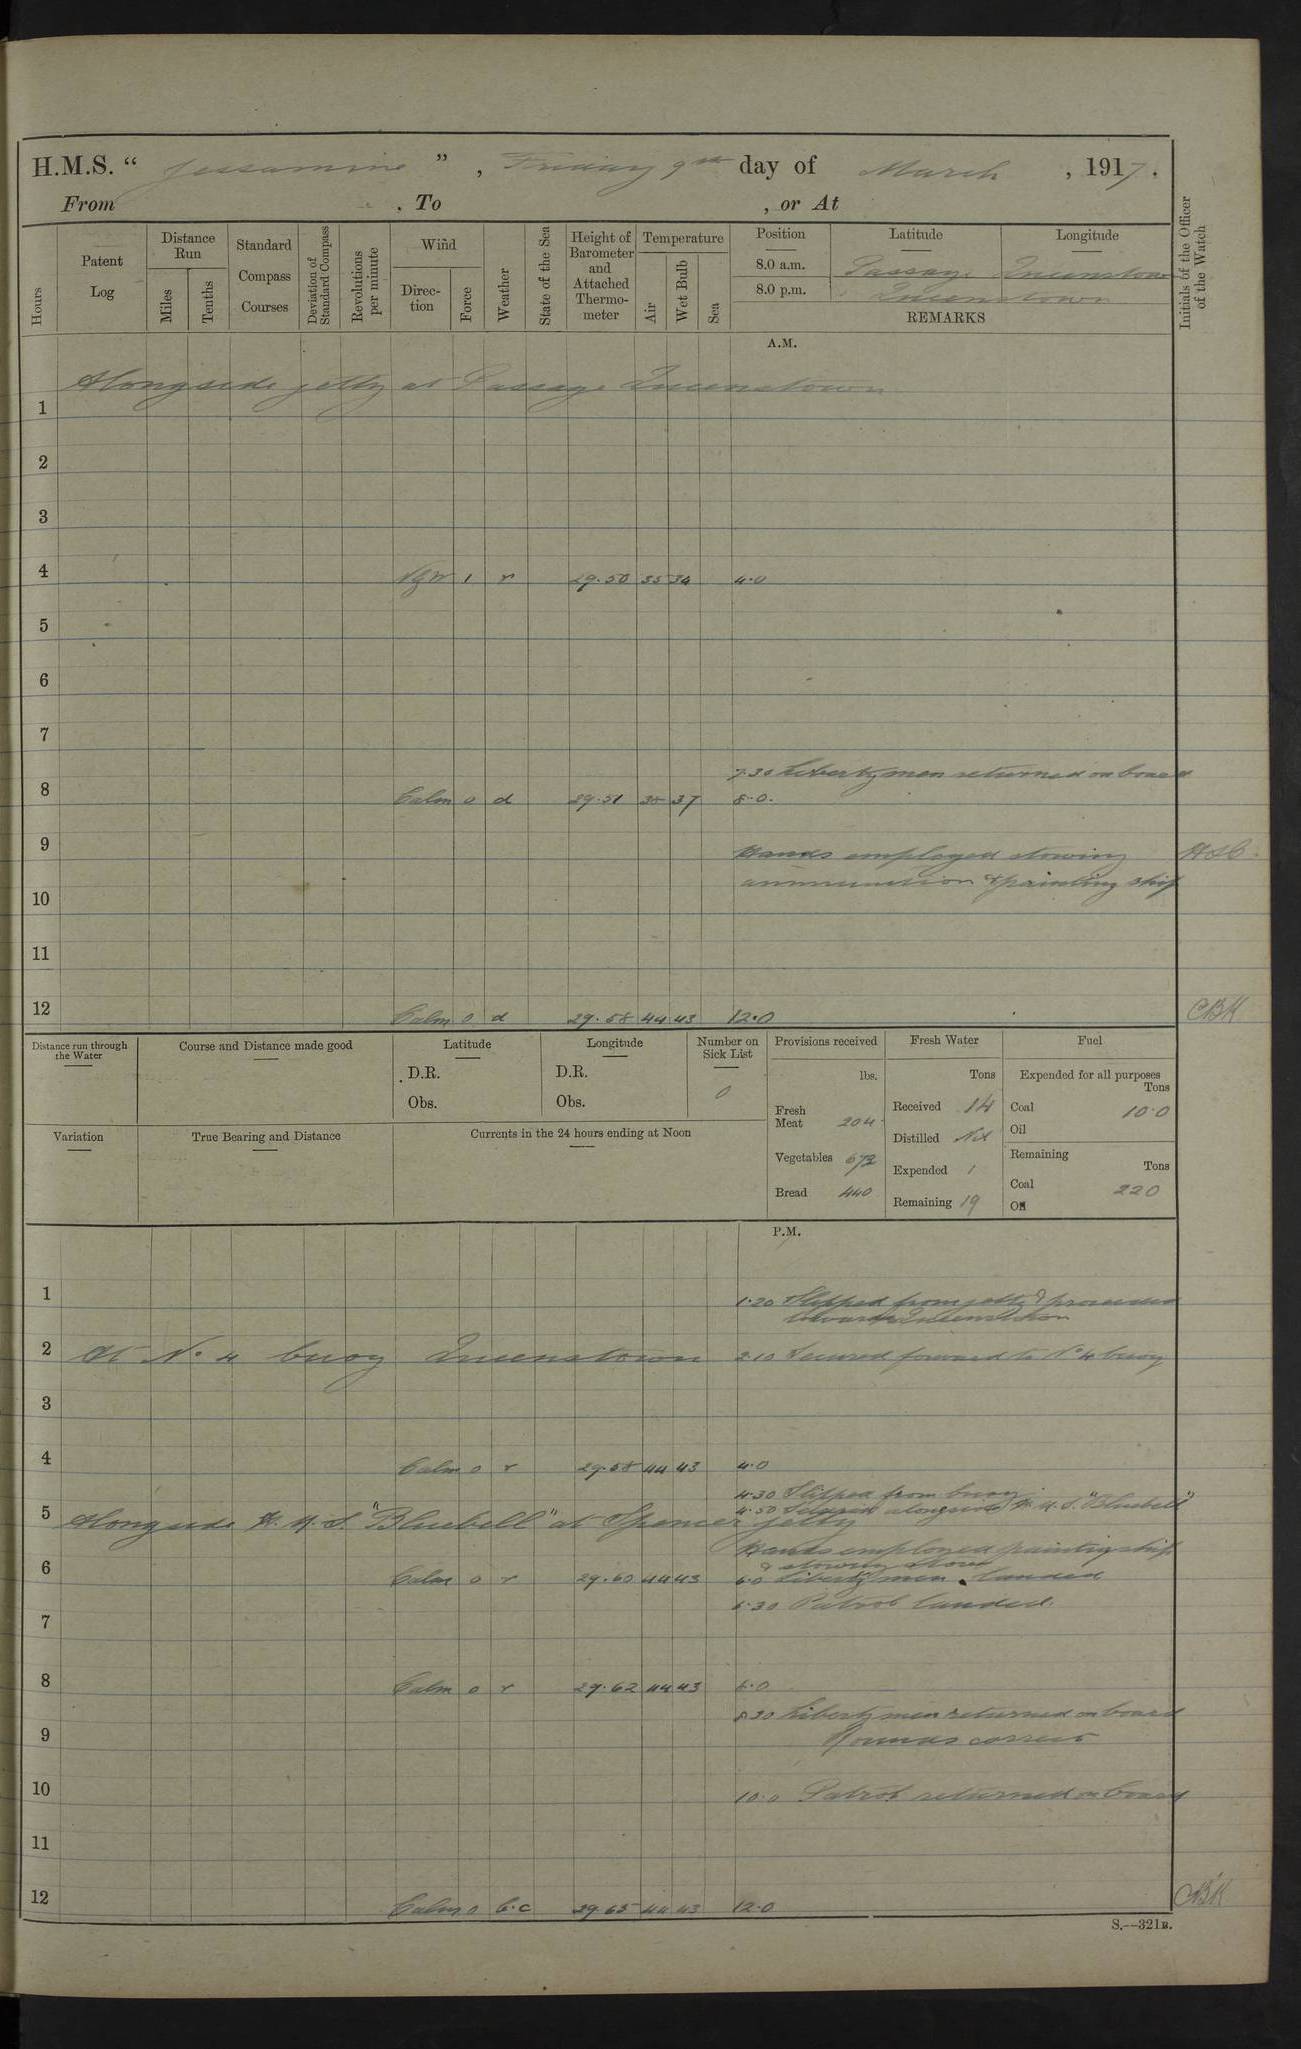 H.M.S. “ Jessamine ” , Friday 9th day of March , 1917.
From , To , or At
Hours
Patent Log
Distance Run
Miles
Tenths
Standard Compass Courses
Deviation of Standard Compass
Revolutions per minute
Wind
Direction
Force
Weather
State of the Sea
Height of Barometer and Attached Thermometer
Temperature
Air
Wet Bulb
Sea
Position Latitude Longitude
8.0 a.m. Passage Queenstown
8.0 p.m. Queenstown
REMARKS
Initials of the Officer of the Watch
A.M.
Alongside jetty at Passage Queenstown
1
2
3
4 1 r 29.50 35 34 4.0
5
6
7
7.30 Liberty men returned on board
8 Calm 0 d 29.51 38 37 8.0.
9 Hands employed stowing
ammunition & painting ship
10
11
12 Calm 0 d 29.58 44 43 12.0 CBK
Distance run through the Water
Course and Distance made good
Latitude
D.R.
Obs.
Longitude
D.R.
Obs.
Number on Sick List
0
Variation
True Bearing and Distance
Currents in the 24 hours ending at Noon
Provisions received
lbs.
Fresh Meat 204
Vegetables 672
Bread 440
Fresh Water
Tons
Received 14
Distilled Nil
Expended 1
Remaining 19
Fuel
Expended for all purposes
Tons
Coal 10.0
Oil
Remaining
Tons
Coal 220
Oil
P.M.
1 1.20 Slipped from jetty & proceeded
towards Queenstown
2 At No 4 buoy Queenstown 2.10 Secured forward to No 4 buoy
3
4 Calm 0 r 29.58 44 43 4.0
4.30 Slipped from buoy
4.50 Secured alongside H.M.S. "Bluebell"
5 Alongside H.M.S. "Bluebell" at Spencer jetty
Hands employed painting ship
& stowing stores
6 Calm 0 r 29.60 44 43 6.0 Liberty men landed
6.30 Patrol landed.
7
8 Calm 0 r 29.62 44 43
8.30 Liberty men returned on board
9 Rounds correct
10 10.0 Patrol returned on board
11
12 Calm 0 b.c 29.65 44 43 12.0 CBK
S.—321B.